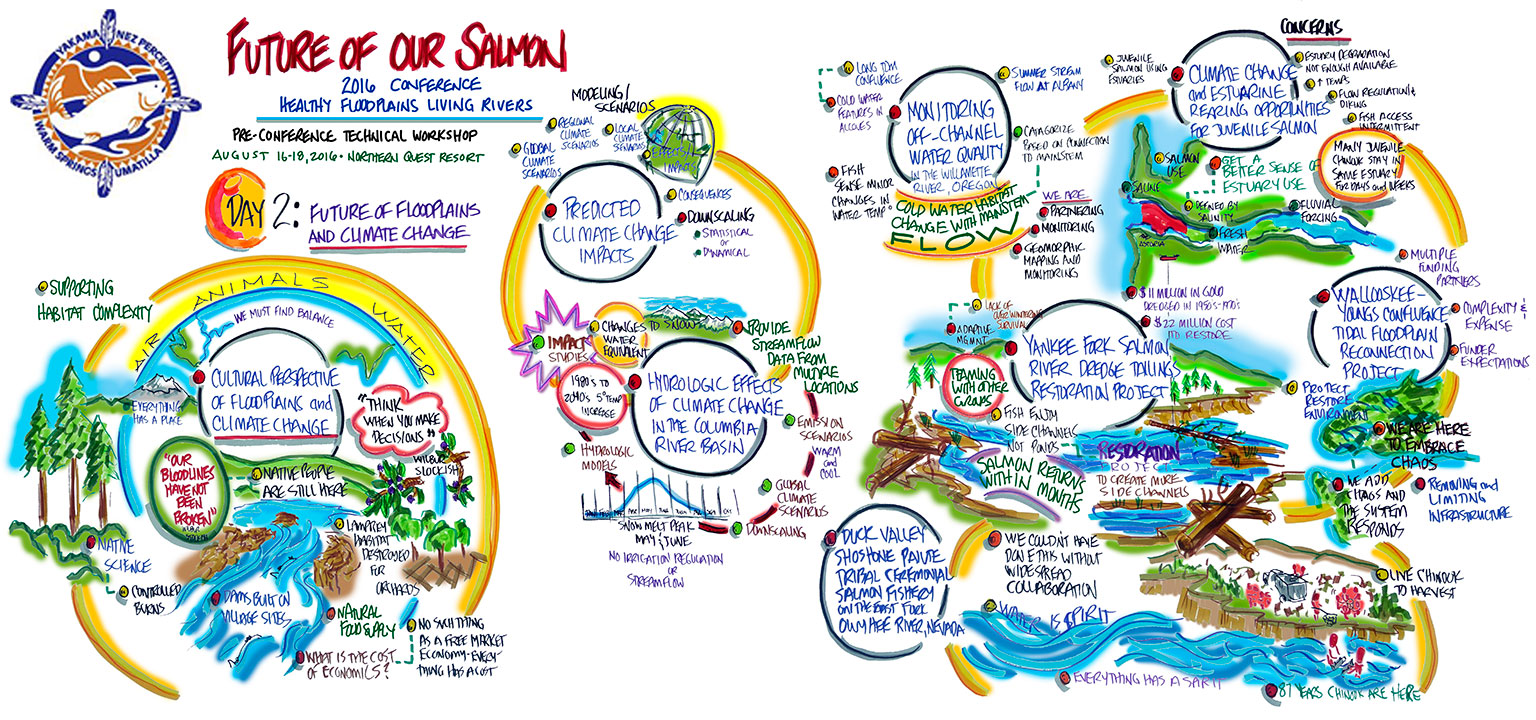 YAKAMA
NEZ PERCE
WARM SPRINGS
UMATILLA
FUTURE OF OUR SALMON
2016 CONFERENCE
HEALTHY FLOODPLAINS LIVING RIVERS
PRE-CONFERENCE TECHNICAL WORKSHOP
AUGUST 16-18, 2016 • NORTHERN QUEST RESORT
DAY 2:
FUTURE OF FLOODPLAINS
AND CLIMATE CHANGE
SUPPORTING
HABITAT COMPLEXITY
AIR ANIMALS WATER
WE MUST FIND BALANCE
CULTURAL PERSPECTIVE
OF FLOODPLAINS and
CLIMATE CHANGE
EVERYTHING
HAS A PLACE
"THINK
WHEN YOU MAKE
DECISIONS"
WILBUR
SLOCKISH
"OUR
BLOODLINES
HAVE NOT
BEEN
BROKEN"
NATIVE PEOPLE
ARE STILL HERE
LAMPREY
HABITAT
DESTROYED
FOR
ORCHARDS
NATIVE
SCIENCE
CONTROLLED
BURNS
DAMS BUILT ON
VILLAGE SITES
NATURAL
FOOD SUPPLY
WHAT IS THE COST
OF ECONOMICS?
NO SUCH THING
AS A FREE MARKET
ECONOMY-EVERY-
THING HAS A COST
MODELING/
SCENARIOS
REGIONAL
CLIMATE
SCENARIOS
LOCAL
CLIMATE
SCENARIOS
GLOBAL
CLIMATE
SCENARIOS
EFFECTS/
IMPACTS
CONSEQUENCES
PREDICTED
CLIMATE CHANGE
IMPACTS
DOWNSCALING
STATISTICAL
OR
DYNAMICAL
IMPACT
STUDIES
CHANGES TO SNOW
WATER
EQUIVALENT
PROVIDE
STREAMFLOW
DATA FROM
MULTIPLE
LOCATIONS
1980'S TO
2040'S 5° TEMP
INCREASE
HYDROLOGIC EFFECTS
OF CLIMATE CHANGE
IN THE COLUMBIA
RIVER BASIN
HYDROLOGIC
MODELS
EMISSION
SCENARIOS
WARM
and
COOL
GLOBAL
CLIMATE
SCENARIOS
DOWNSCALING
SNOW MELT PEAK
MAY & JUNE
NO IRRIGATION REGULATION
OR
STREAMFLOW
LONG TOM
CONFLUENCE
COLD WATER
FEATURES IN
ALCOVES
SUMMER STREAM
FLOW AT ALBANY
MONITORING
OFF-CHANNEL
WATER QUALITY
IN THE WILLAMETTE
RIVER, OREGON
CATAGORIZE
BASED ON CONNECTION
TO MAINSTEM
FISH
SENSE MINOR
CHANGES IN
WATER TEMP°
COLD WATER HABITAT
CHANGE WITH MAINSTEM
FLOW
WE ARE
PARTNERING
MONITORING
GEOMORPHIC
MAPPING AND
MONITORING
CONCERNS
JUVENILE
SALMON USING
ESTUARIES
CLIMATE CHANGE
and ESTUARINE
REARING OPPORTUNITIES
FOR JUVENILE SALMON
ESTUARY DEGRADATION
NOT ENOUGH AVAILABLE
↑ TEMPS
FLOW REGULATION &
DIKING
FISH ACCESS
INTERMITTENT
MANY JUVENILE
CHINOOK STAY IN
SAME ESTUARY
FOR DAYS and WEEKS
SALMON
USE
GET A
BETTER SENSE OF
ESTUARY USE
SALINE
DEFINED BY
SALINITY
FLUVIAL
FORCING
FRESH
WATER
ASTORIA
$11 MILLION IN GOLD
DREDGED IN 1930'S-1950'S
$22 MILLION COST
TO RESTORE
LACK OF
OVER WINTERING
SURVIVAL
ADAPTIVE
MGMNT
YANKEE FORK SALMON
RIVER DREDGE TAILINGS
RESTORATION PROJECT
TEAMING
WITH OTHER
GROUPS
FISH ENJOY
SIDE CHANNELS
NOT PONDS
SALMON RETURNS
WITHIN MONTHS
RESTORATION
PROJECT
TO CREATE MORE
SIDE CHANNELS
MULTIPLE
FUNDING
PARTNERS
WALLOOSKEE-
YOUNGS CONFLUENCE
TIDAL FLOODPLAIN
RECONNECTION
PROJECT
COMPLEXITY &
EXPENSE
FUNDER
EXPECTATIONS
PROTECT
RESTORE
ENVIRONMENT
WE ARE HERE
TO EMBRACE
CHAOS
WE ADD
CHAOS AND
THE SYSTEM
RESPONDS
REMOVING and
LIMITING
INFRASTRUCTURE
DUCK VALLEY
SHOSHONE PAIUTE
TRIBAL CEREMONIAL
SALMON FISHERY
ON THE EAST FORK
OWYHEE RIVER, NEVADA
WE COULDN'T HAVE
DONE THIS WITHOUT
WIDESPREAD
COLLABORATION
WATER IS SPIRIT
LIVE CHINOOK
TO HARVEST
EVERYTHING HAS A SPIRIT
87 YEARS CHINOOK ARE HERE